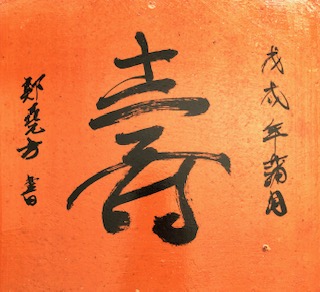 戊戌年蒲月
壽
鄭堯方 書